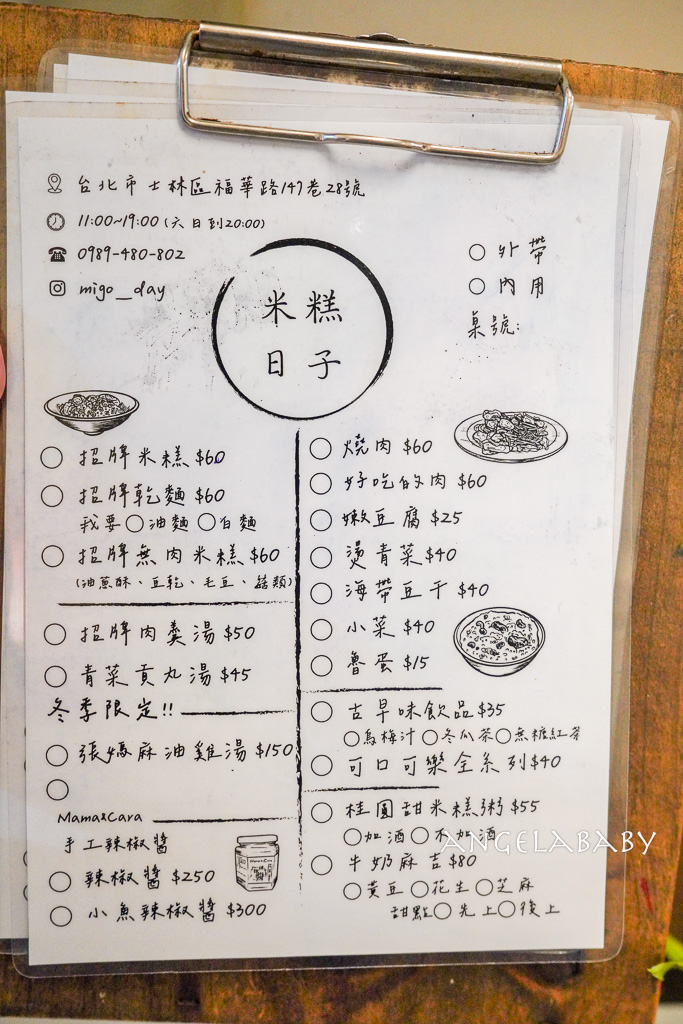 台北市士林區福華路147巷28號
11:00~19:00 (六日到20:00)
0989-480-802
migo_day
外帶
內用
桌號:
米糕
日子
招牌米糕 $60
招牌乾麵 $60
我要○油麵 ○白麵
招牌無肉米糕 $60
(油蔥酥、豆乾、毛豆、菇類)
招牌肉羹湯 $50
青菜貢丸湯 $45
冬季限定!!
張媽麻油雞湯 $150
Mama&Cara
手工辣椒醬
辣椒醬 $250
小魚辣椒醬 $300
燒肉 $60
好吃的肉 $60
嫩豆腐 $25
燙青菜 $40
海帶豆干 $40
小菜 $40
魯蛋 $15
古早味飲品 $35
○烏梅汁 ○冬瓜茶 ○無糖紅茶
可口可樂全系列 $40
桂圓甜米糕粥 $55
○加酒 ○不加酒
牛奶麻吉 $80
○黃豆 ○花生 ○芝麻
甜點○先上○後上
ANGELABABY